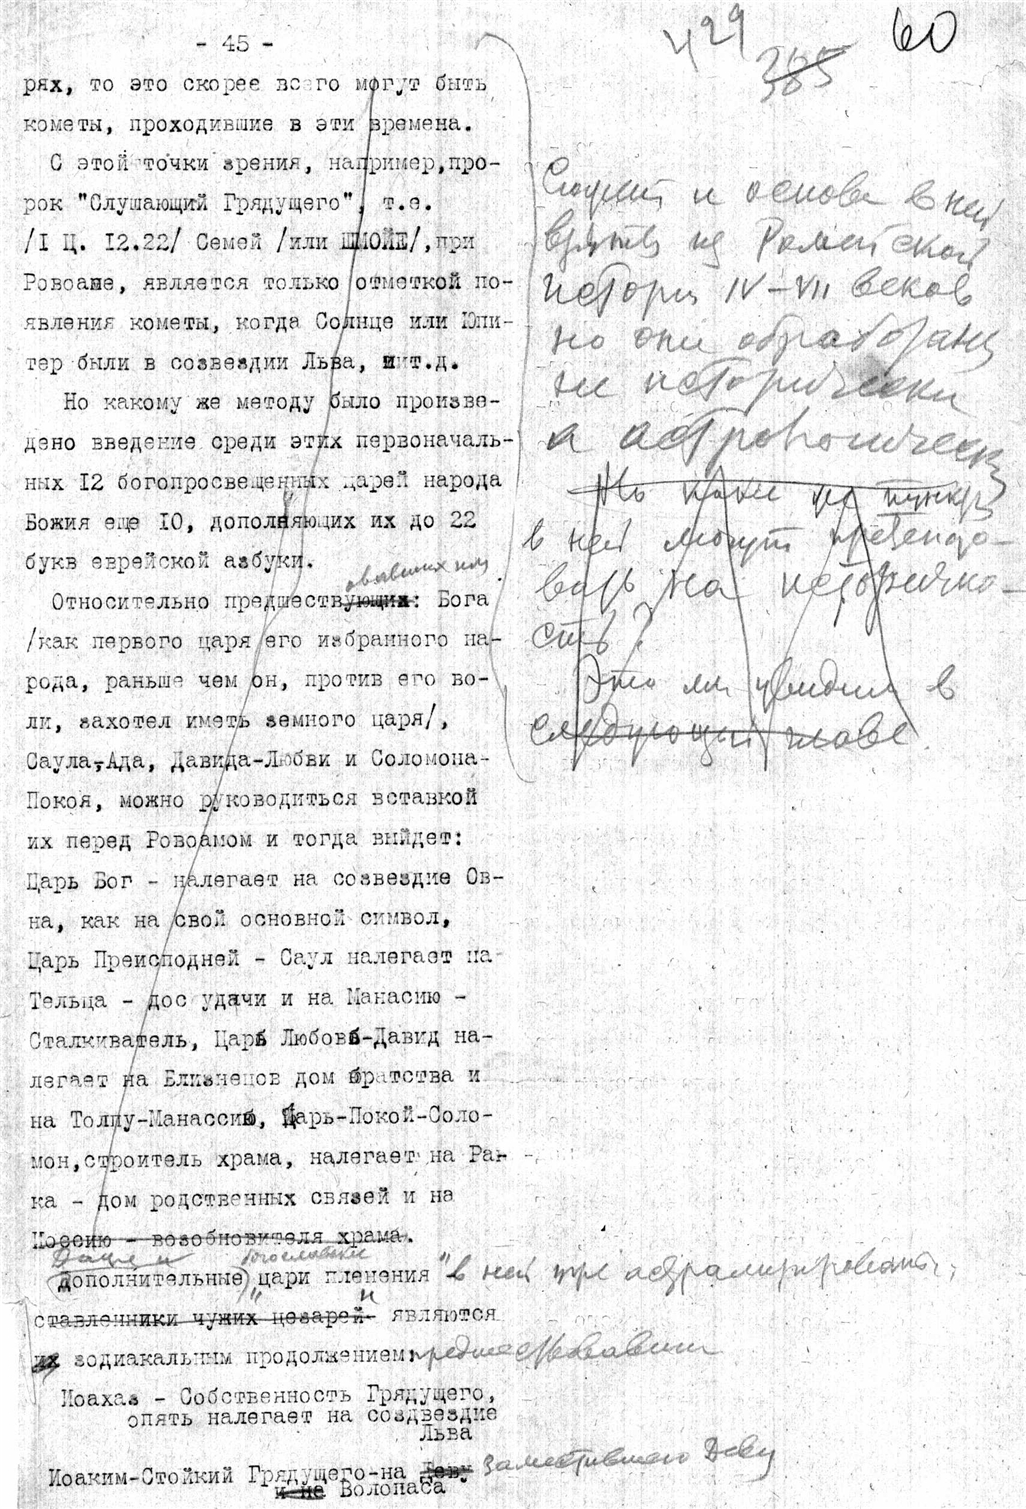 - 45 -
429
385
60
рях, то это скорее всего могут быть
кометы, проходившие в эти времена.
С этой точки зрения, например,про-
рок "Слушающий Грядущего", т.е.
/I Ц. I2.22/ Семей /или ШМОЙЕ/,при
Ровоаме, является только отметкой по-
явления кометы, когда Солнце или Юпи-
тер были в созвездии Льва, ит.д.
Но какому же методу было произве-
дено введение среди этих первоначаль-
ных I2 богопросвещенных царей народа
Божия еще IO, дополняющих их до 22
букв еврейской азбуки.
Относительно предшествующих: Бога
/как первого царя его избранного на-
рода, раньше чем он, против его во-
ли, захотел иметь земного царя/,
Саула-Ада, Давида-Любви и Соломона-
Покоя, можно руководиться вставкой
их перед Ровоамом и тогда выйдет:
Царь Бог - налегает на созвездие Ов-
на, как на свой основной символ,
Царь Преисподней - Саул налегает на
Тельца - дос удачи и на Манасию -
Сталкиватель, Царь Любовь-Давид на-
легает на Близнецов дом братства и
на Толпу-Манассию, Царь-Покой-Соло-
мон,строитель храма, налегает на Ра-
ка - дом родственных связей и на
Иосию - возобновителя храма.
богословские
Дополнительные цари пленения " в ней
ставленники чужих цезарей" являются
их зодиакальным продолжением:
Иоахаз - Собственность Грядущего,
опять налегает на создвездие
Льва
Иоаким-Стойкий Грядущего-на Деву заместившего Деву
и не Волопаса
и основы в ней
взяты из Ромейской
истории IV-VII веков
но они обработаны
не исторически
а астрономически
Но какие же пункты
в ней могут претендо-
вать на исторично-
сть?
Это мы увидим в
следующей главе.